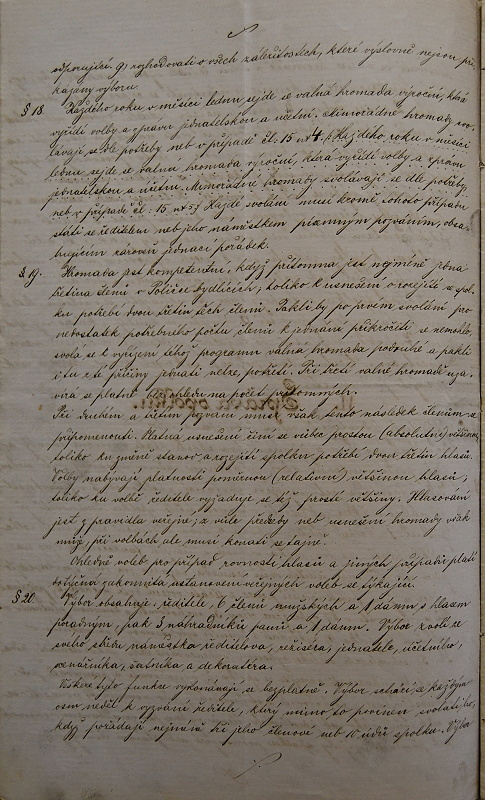 odporující. g, rozhodovati o všech záležitostech, které výslovně nejsou při-
kázány výboru.
§ 18. Každého roku v měsíci lednu sejde se valná hromada výroční, která
vyřídí volby a zprávu jednatelskou a účetní. Mimořádné hromady svo-
lávají se dle potřeby neb v případě čl: 15 Každého roku v měsíci
lednu sejde se valná hromada výroční, která vyřídí volby a zprávu
jednatelskou a účetní. Mimořádné hromady svolávají se dle potřeby
neb v případě čl: 15 Každé svolání musí kromě tohoto případu
státi se ředitelem neb jeho náměstkem písemným pozváním, obsa-
hujícím zároveň jednací pořádek.
§ 19. Hromada jest kompetentní, když přítomna jest nejméně jedna
třetina členů v Poličce bydlících; toliko k usnešení o rozejití se spol-
ku potřebí dvou třetin těch členů. Pakli by po prvém svolání pro
nedostatek potřebného počtu členů k jednání přikročiti se nemohlo,
svolá se k vyřízení téhož programu valná hromada podruhé a pakli
i tu z té příčiny jednati nelze, potřetí. Při třetí valné hromadě uza-
vírá se platně bez ohledu na počet přítomných.
Při druhém a třetím pozvání musí však tento následek členům se
připomenouti. Platná usnešení činí se vůbec prostou (absolutní) většinou,
toliko ku změně stanov a rozejití spolku potřebí dvou třetin hlasů.
Volby nabývají platnosti poměrnou (relativní) většinou hlasů,
toliko ku volbě ředitele vyžaduje se též prosté většiny. Hlasování
jest z pravidla veřejné; z vůle předsedy neb usnešení hromady však
může, při volbách ale musí konati se tajně.
Ohledně voleb pro případ rovnosti hlasů a jiných případů platí
dotyčná zákonitá ustanovení veřejných voleb se týkající.
§ 20. Výbor obsahuje: ředitele, 6 členů mužských a 1 dámu s hlasem
poradným, pak 3 náhradníky pánů a 1 dámu. Výbor zvolí ze
svého středu náměstka ředitelova, režiséra, jednatele, účetního,
scenárníka, šatníka a dekoratéra.
Veškeré tyto funkce vykonávají se bezplatně. Výbor schází se každých
osm neděl k vyzvání ředitele, který mimo to povinen svolati ho,
když požádají nejméně tři jeho členové neb 10 údů spolku. Výbor